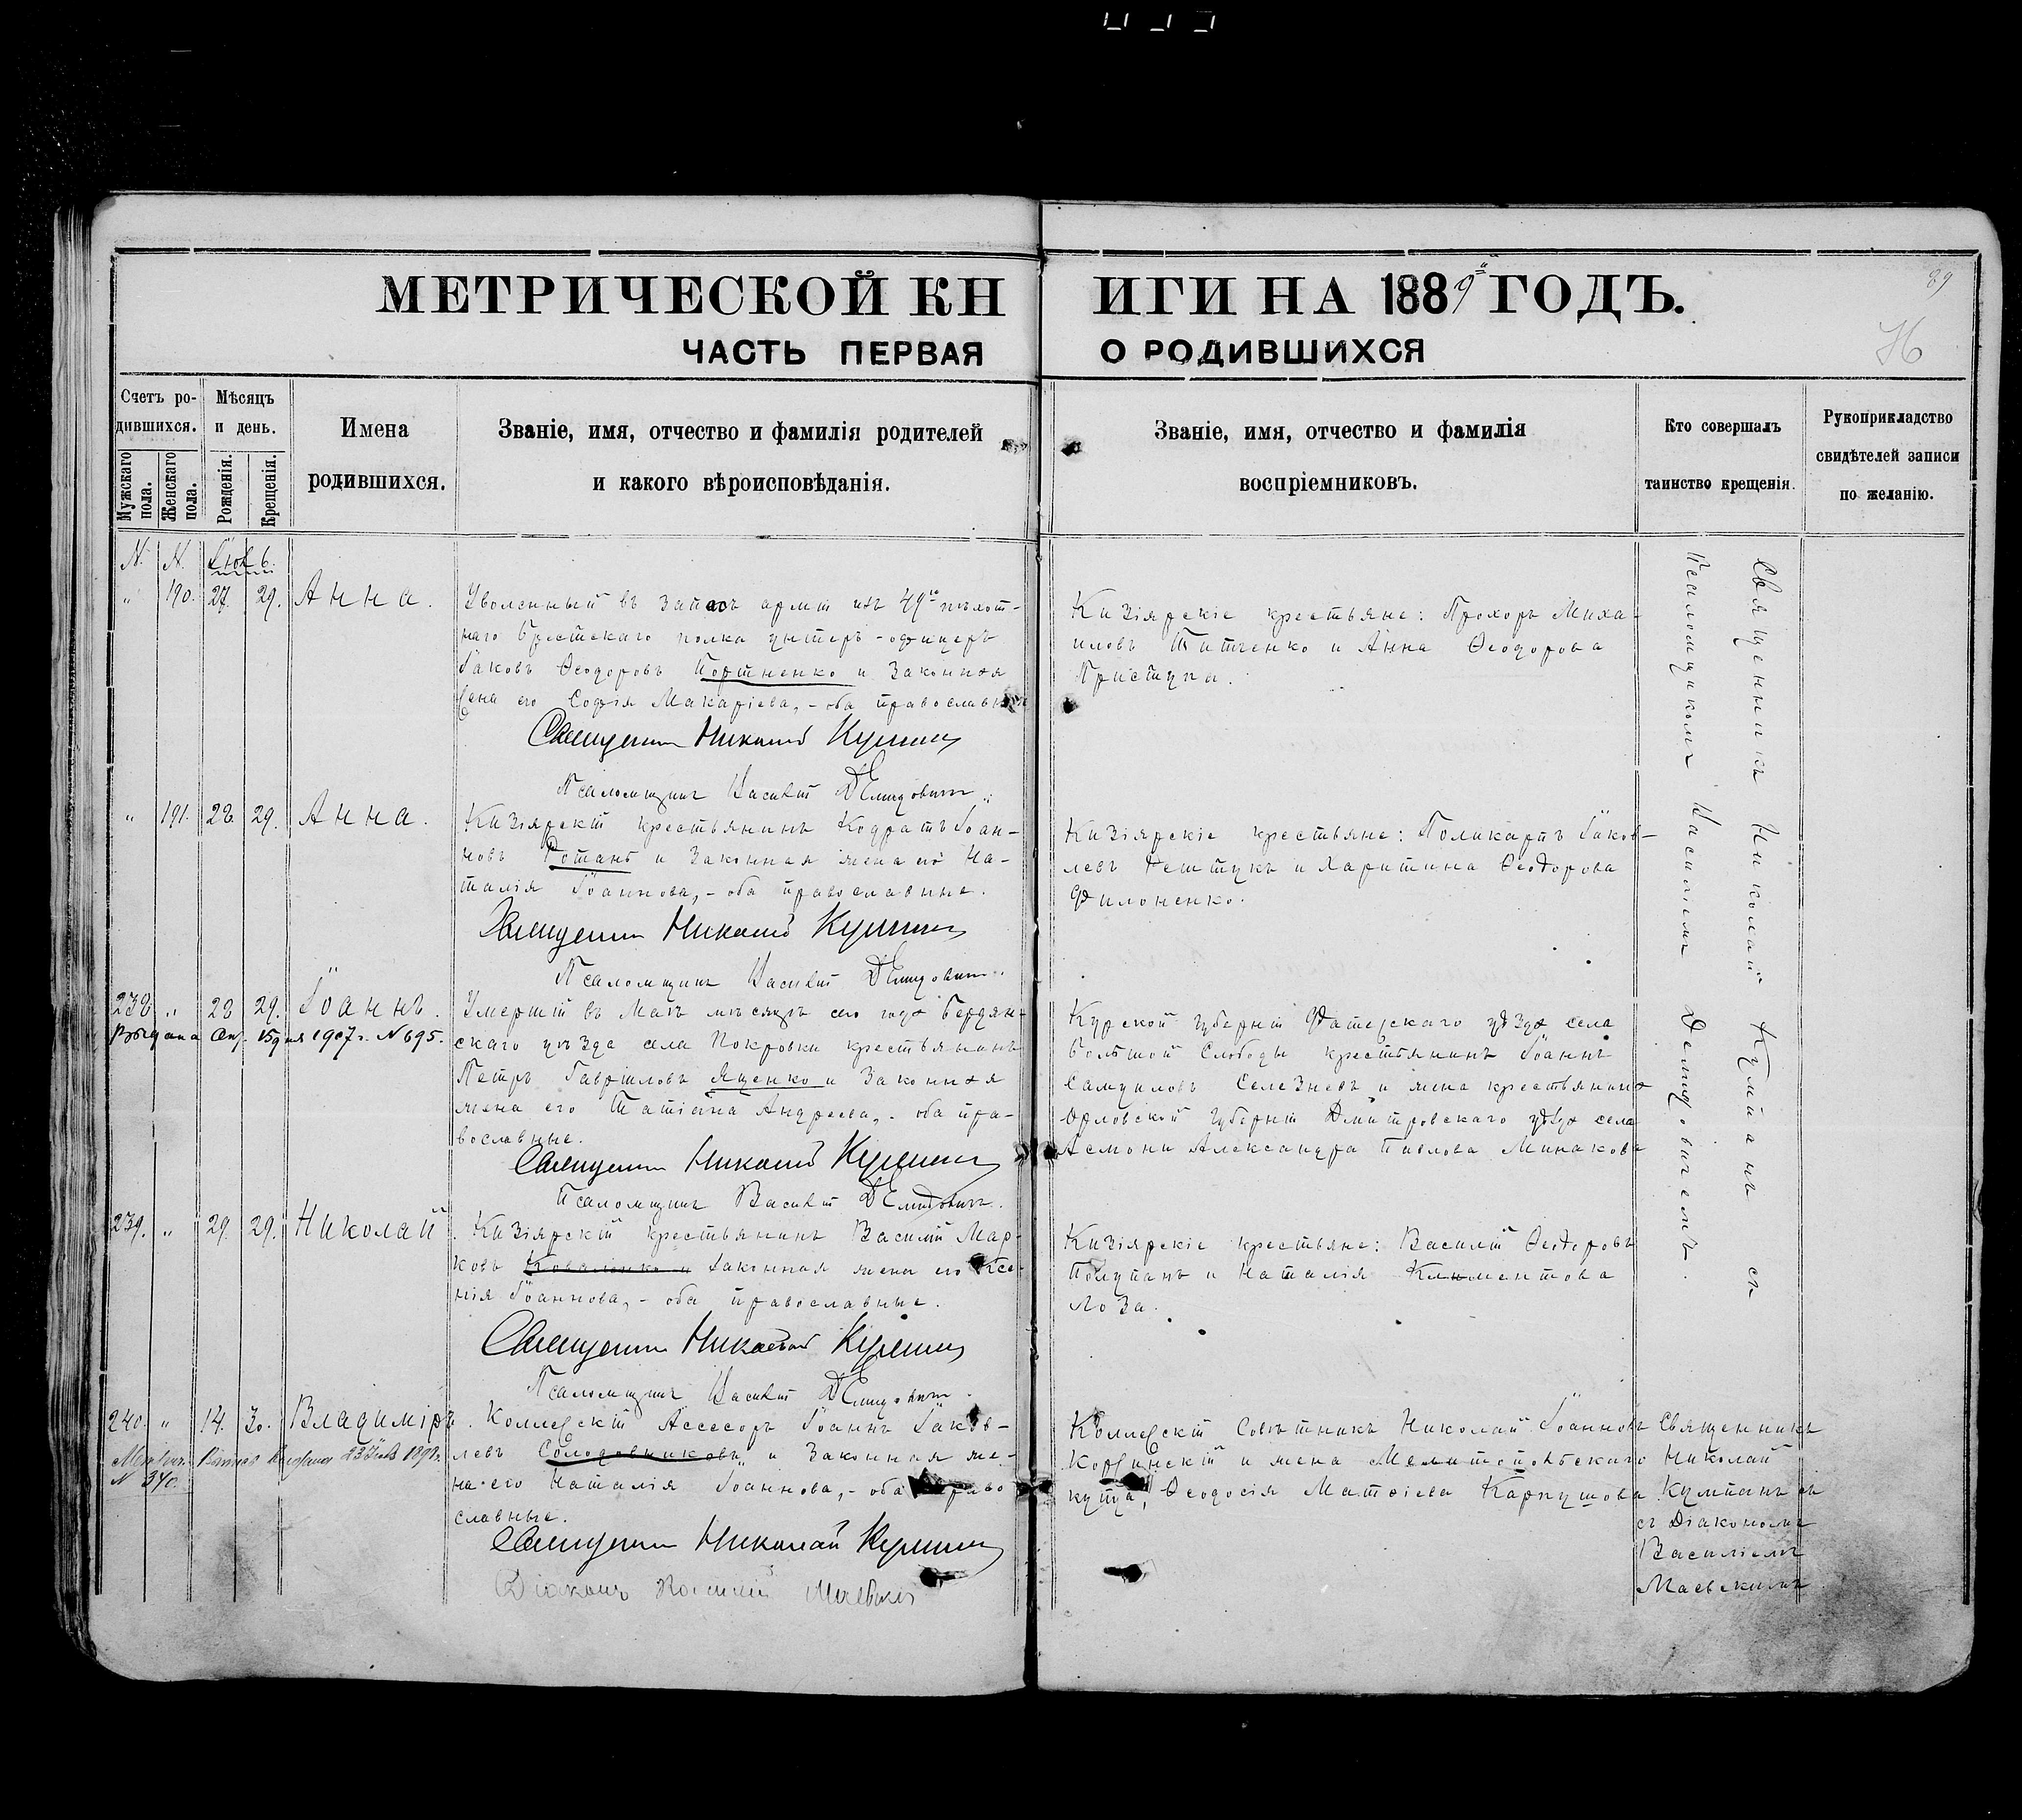 МЕТРИЧЕСКОЙ КНИГИ НА 1889й ГОДЪ.
89
ЧАСТЬ ПЕРВАЯ О РОДИВШИХСЯ
Счетъ родившихся.
Мужскаго пола.
Женскаго пола.
Мѣсяцъ и день.
Рожденія.
Крещенія.
Имена
родившихся.
Званіе, имя, отчество и фамилія родителей
и какого вѣроисповѣданія.
Званіе, имя, отчество и фамилія
воспріемниковъ.
Кто совершалъ
таинство крещенія.
Рукоприкладство
свидѣтелей записи
по желанію.
N. N.
" 190. 27. 29. Анна.
Уволенный въ запасъ арміи изъ 49го пѣхот-
наго Брестскаго полка унтеръ-офицеръ
Іаковъ Ѳеодоровъ Портненко и законная
жена его Софія Макаріева, - оба православные
Священникъ Николай Кумпанъ
Псаломщикъ Василій Демидовичъ
Кизіярскіе крестьяне: Прохоръ Миха-
иловъ Титченко и Анна Ѳеодорова
Приступа.
" 191. 28. 29. Анна.
Кизіярскій крестьянинъ Кодратъ Іоан-
новъ Ротань и законная жена его На-
талія Іоаннова, - оба православные.
Священникъ Николай Кумпанъ
Псаломщикъ Василій Демидовичъ.
Кизіярскіе крестьяне: Поликарпъ Іаков-
левъ и Харитина Ѳеодорова
Филоненко.
238. " 28. 29. Іоаннъ.
Выдана 1907 г. N 695.
Умершій въ Маѣ мѣсяцѣ сего года Бердян-
скаго уѣзда села Покровки крестьянинъ
Петръ Гавріиловъ Яценко и законная
жена его Татіана Андреева, - оба пра-
вославные.
Священникъ Николай Кумпанъ
Псаломщикъ Василій Демидовичъ.
Курской губерніи Фатежскаго уѣзда села
Большой Слободы крестьянинъ Іоаннъ
Самуиловъ Селезневъ и жена крестьянина
Орловской губерніи Дмитровскаго уѣзда села
Асмони Александра Павлова Минакова
239. " 29. 29. Николай
Кизіярскій крестьянинъ Василій Мар-
ковъ Коваленко и законная жена его Ксе-
нія Іоаннова, - оба православные.
Священникъ Николай Кумпанъ
Псаломщикъ Василій Демидовичъ.
Кизіярскіе крестьяне: Василій Ѳеодоровъ
Полупанъ и Наталія Климентова
Лоза.
Священникъ Николай Кумпанъ съ
Псаломщикомъ Василіемъ Демидовичемъ.
240. " 14. 30. Владиміръ.
N 340.
Коллежскій Ассесоръ Іоаннъ Іаков-
левъ Солодовниковъ и законная же-
на его Наталія Іоаннова, - оба право
славные.
Священникъ Николай Кумпанъ
Діаконъ Василій Маевскій
Коллежскій Совѣтникъ Николай Іоанновъ
Коржинскій и жена Мелитопольскаго
купца, Ѳеодосія Матѳіева Карпушова
Священникъ
Николай
Кумпанъ
съ Діакономъ
Василіемъ
Маевскимъ